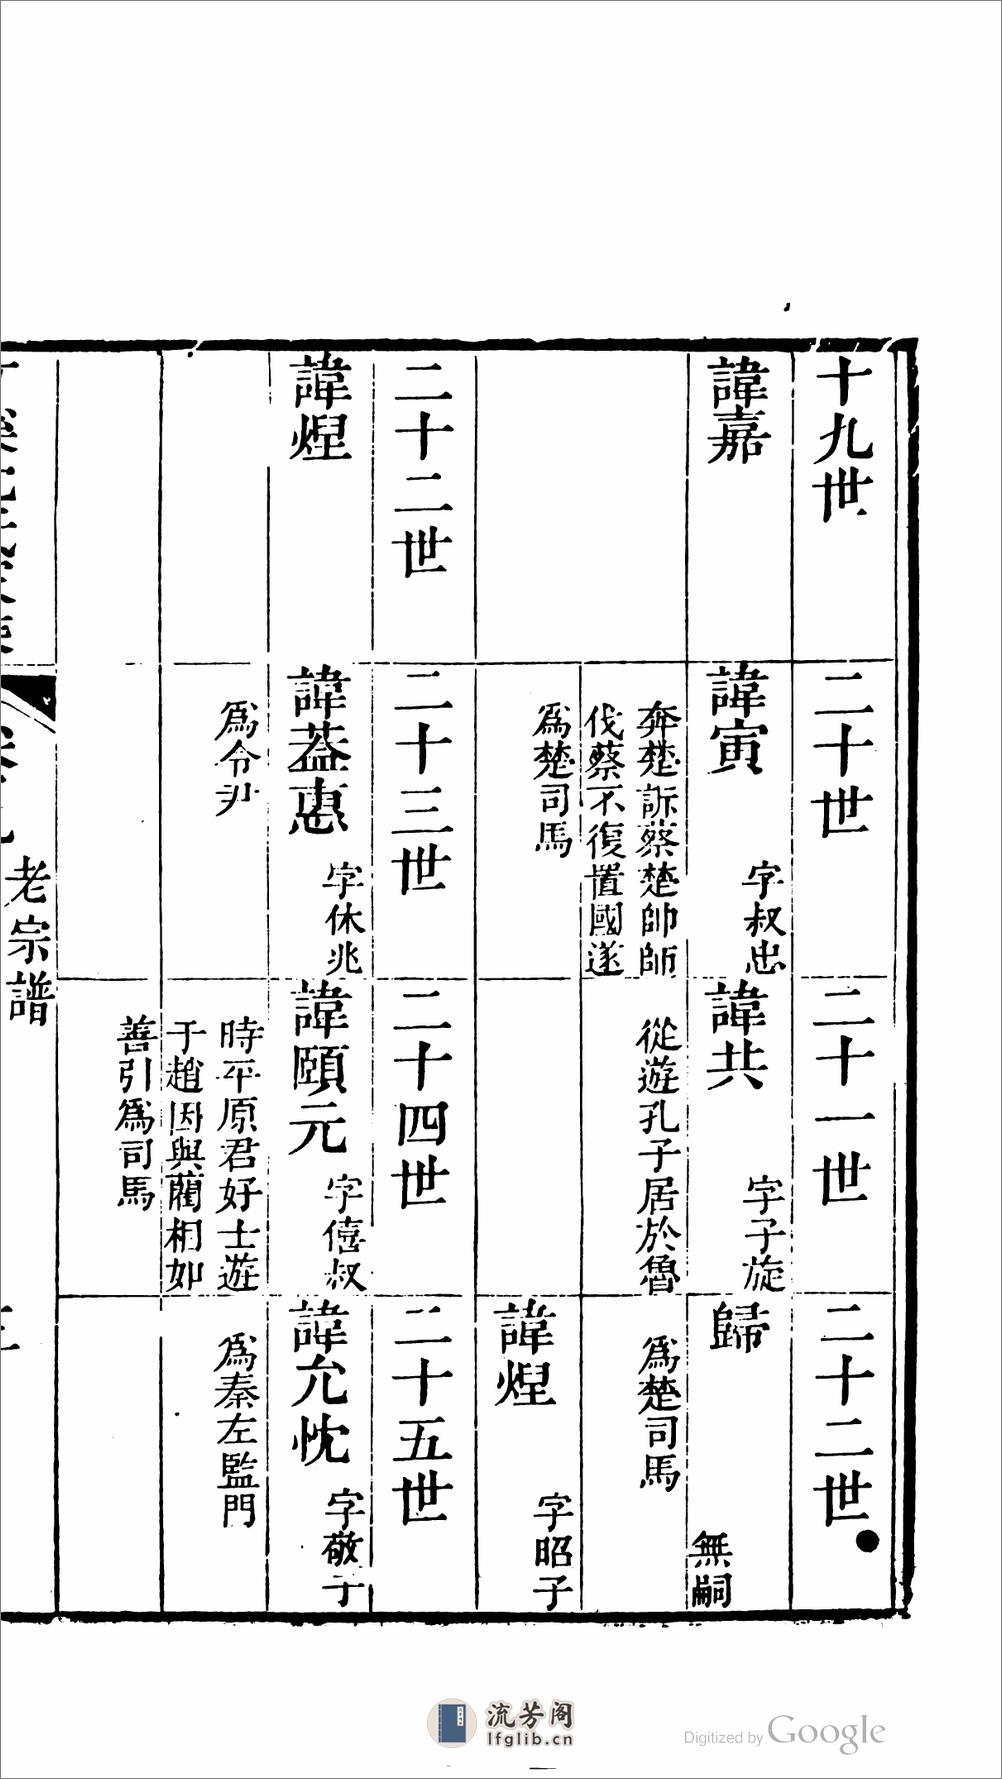 十九世
諱嘉
二十世
諱寅
字叔忠
奔楚訴蔡楚帥師
伐蔡不復置國遂
為楚司馬
二十一世
諱共
字子旋
從遊孔子居於魯
二十二世
歸
無嗣
為楚司馬
諱煋
字昭子
二十二世
諱煋
二十三世
諱葢惠
字休兆
為令尹
二十四世
諱頤元
字僖叔
時平原君好士遊
于趙因與藺相如
善引為司馬
二十五世
諱允忱
字敬子
為秦左監門
老宗譜
流芳阁
lfglib.cn
Digitized by Google